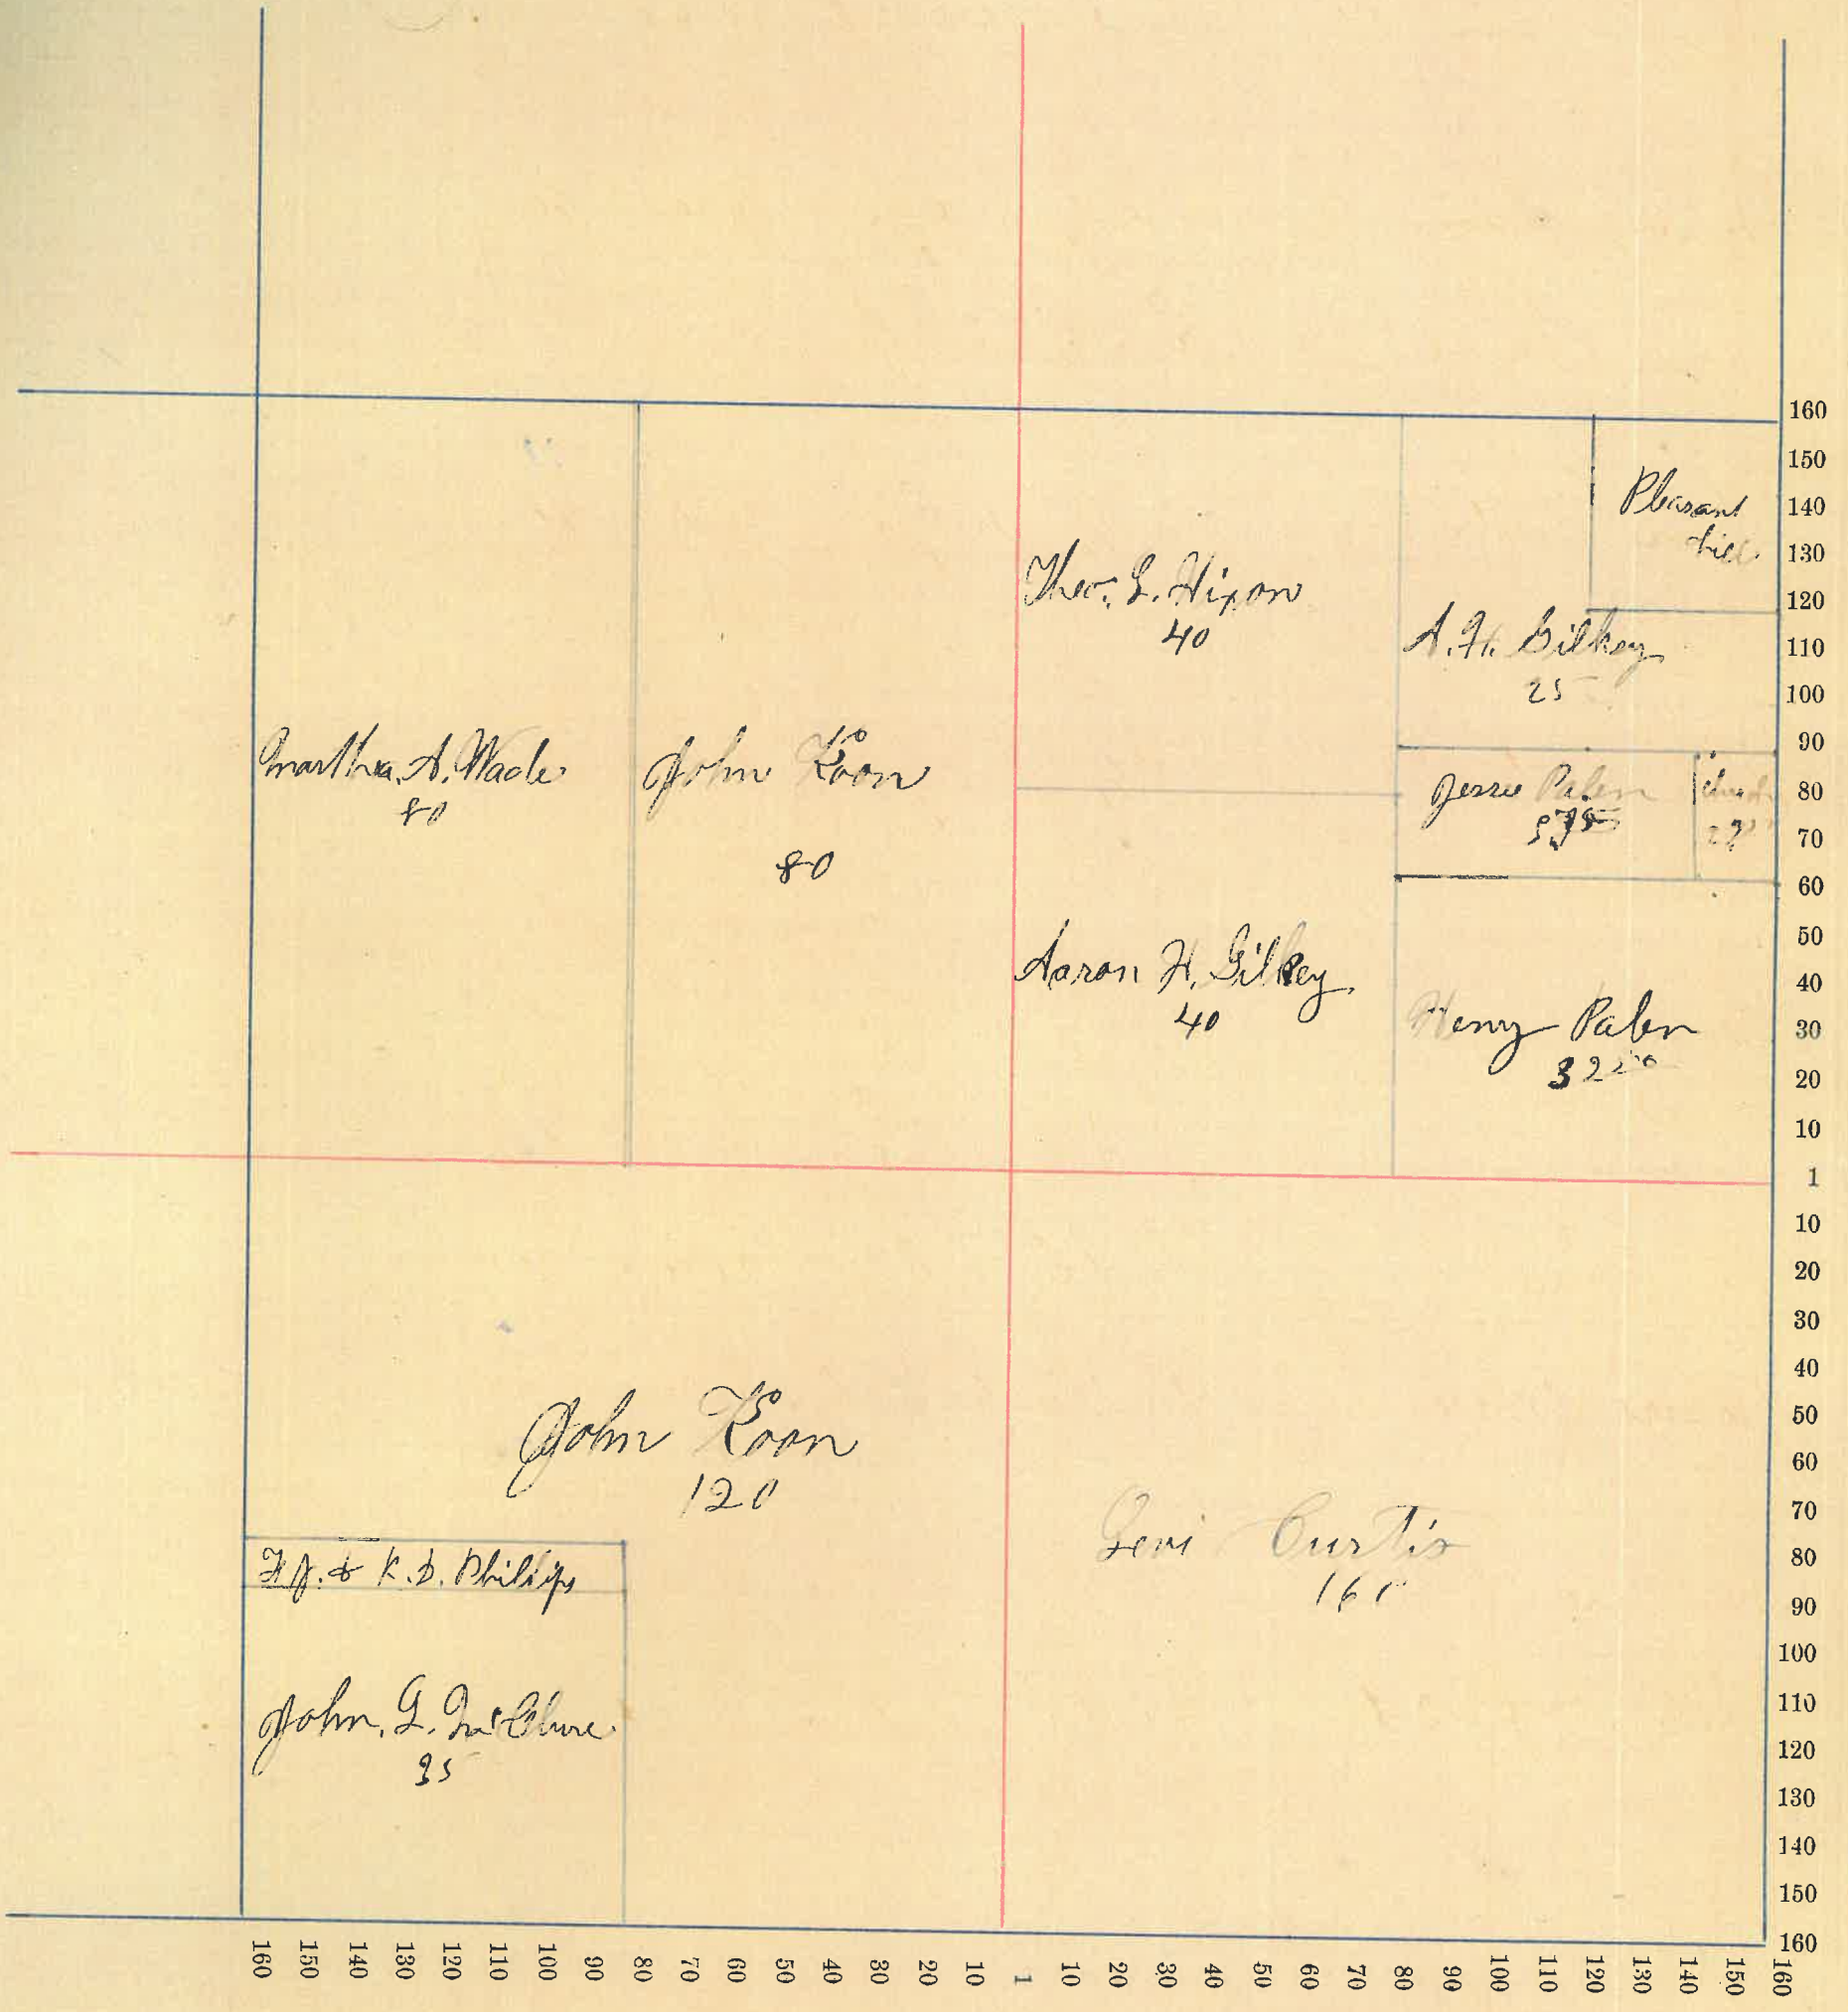 Pleasant
hill
Theo. L. Hixon
40
A. H. Gilkey
25
Martha A. Wade
80
John Koon
80
Jesse Palen
Aaron H. Gilkey
40
Henry Palen
32 50
John Koon
120
Levi Curtis
160
F. J. & K. D. Philips
John G. McClure
35
160
150
140
130
120
110
100
90
80
70
60
50
40
30
20
10
1
10
20
30
40
50
60
70
80
90
100
110
120
130
140
150
160
160 150 140 130 120 110 100 90 80 70 60 50 40 30 20 10 1 10 20 30 40 50 60 70 80 90 100 110 120 130 140 150 160